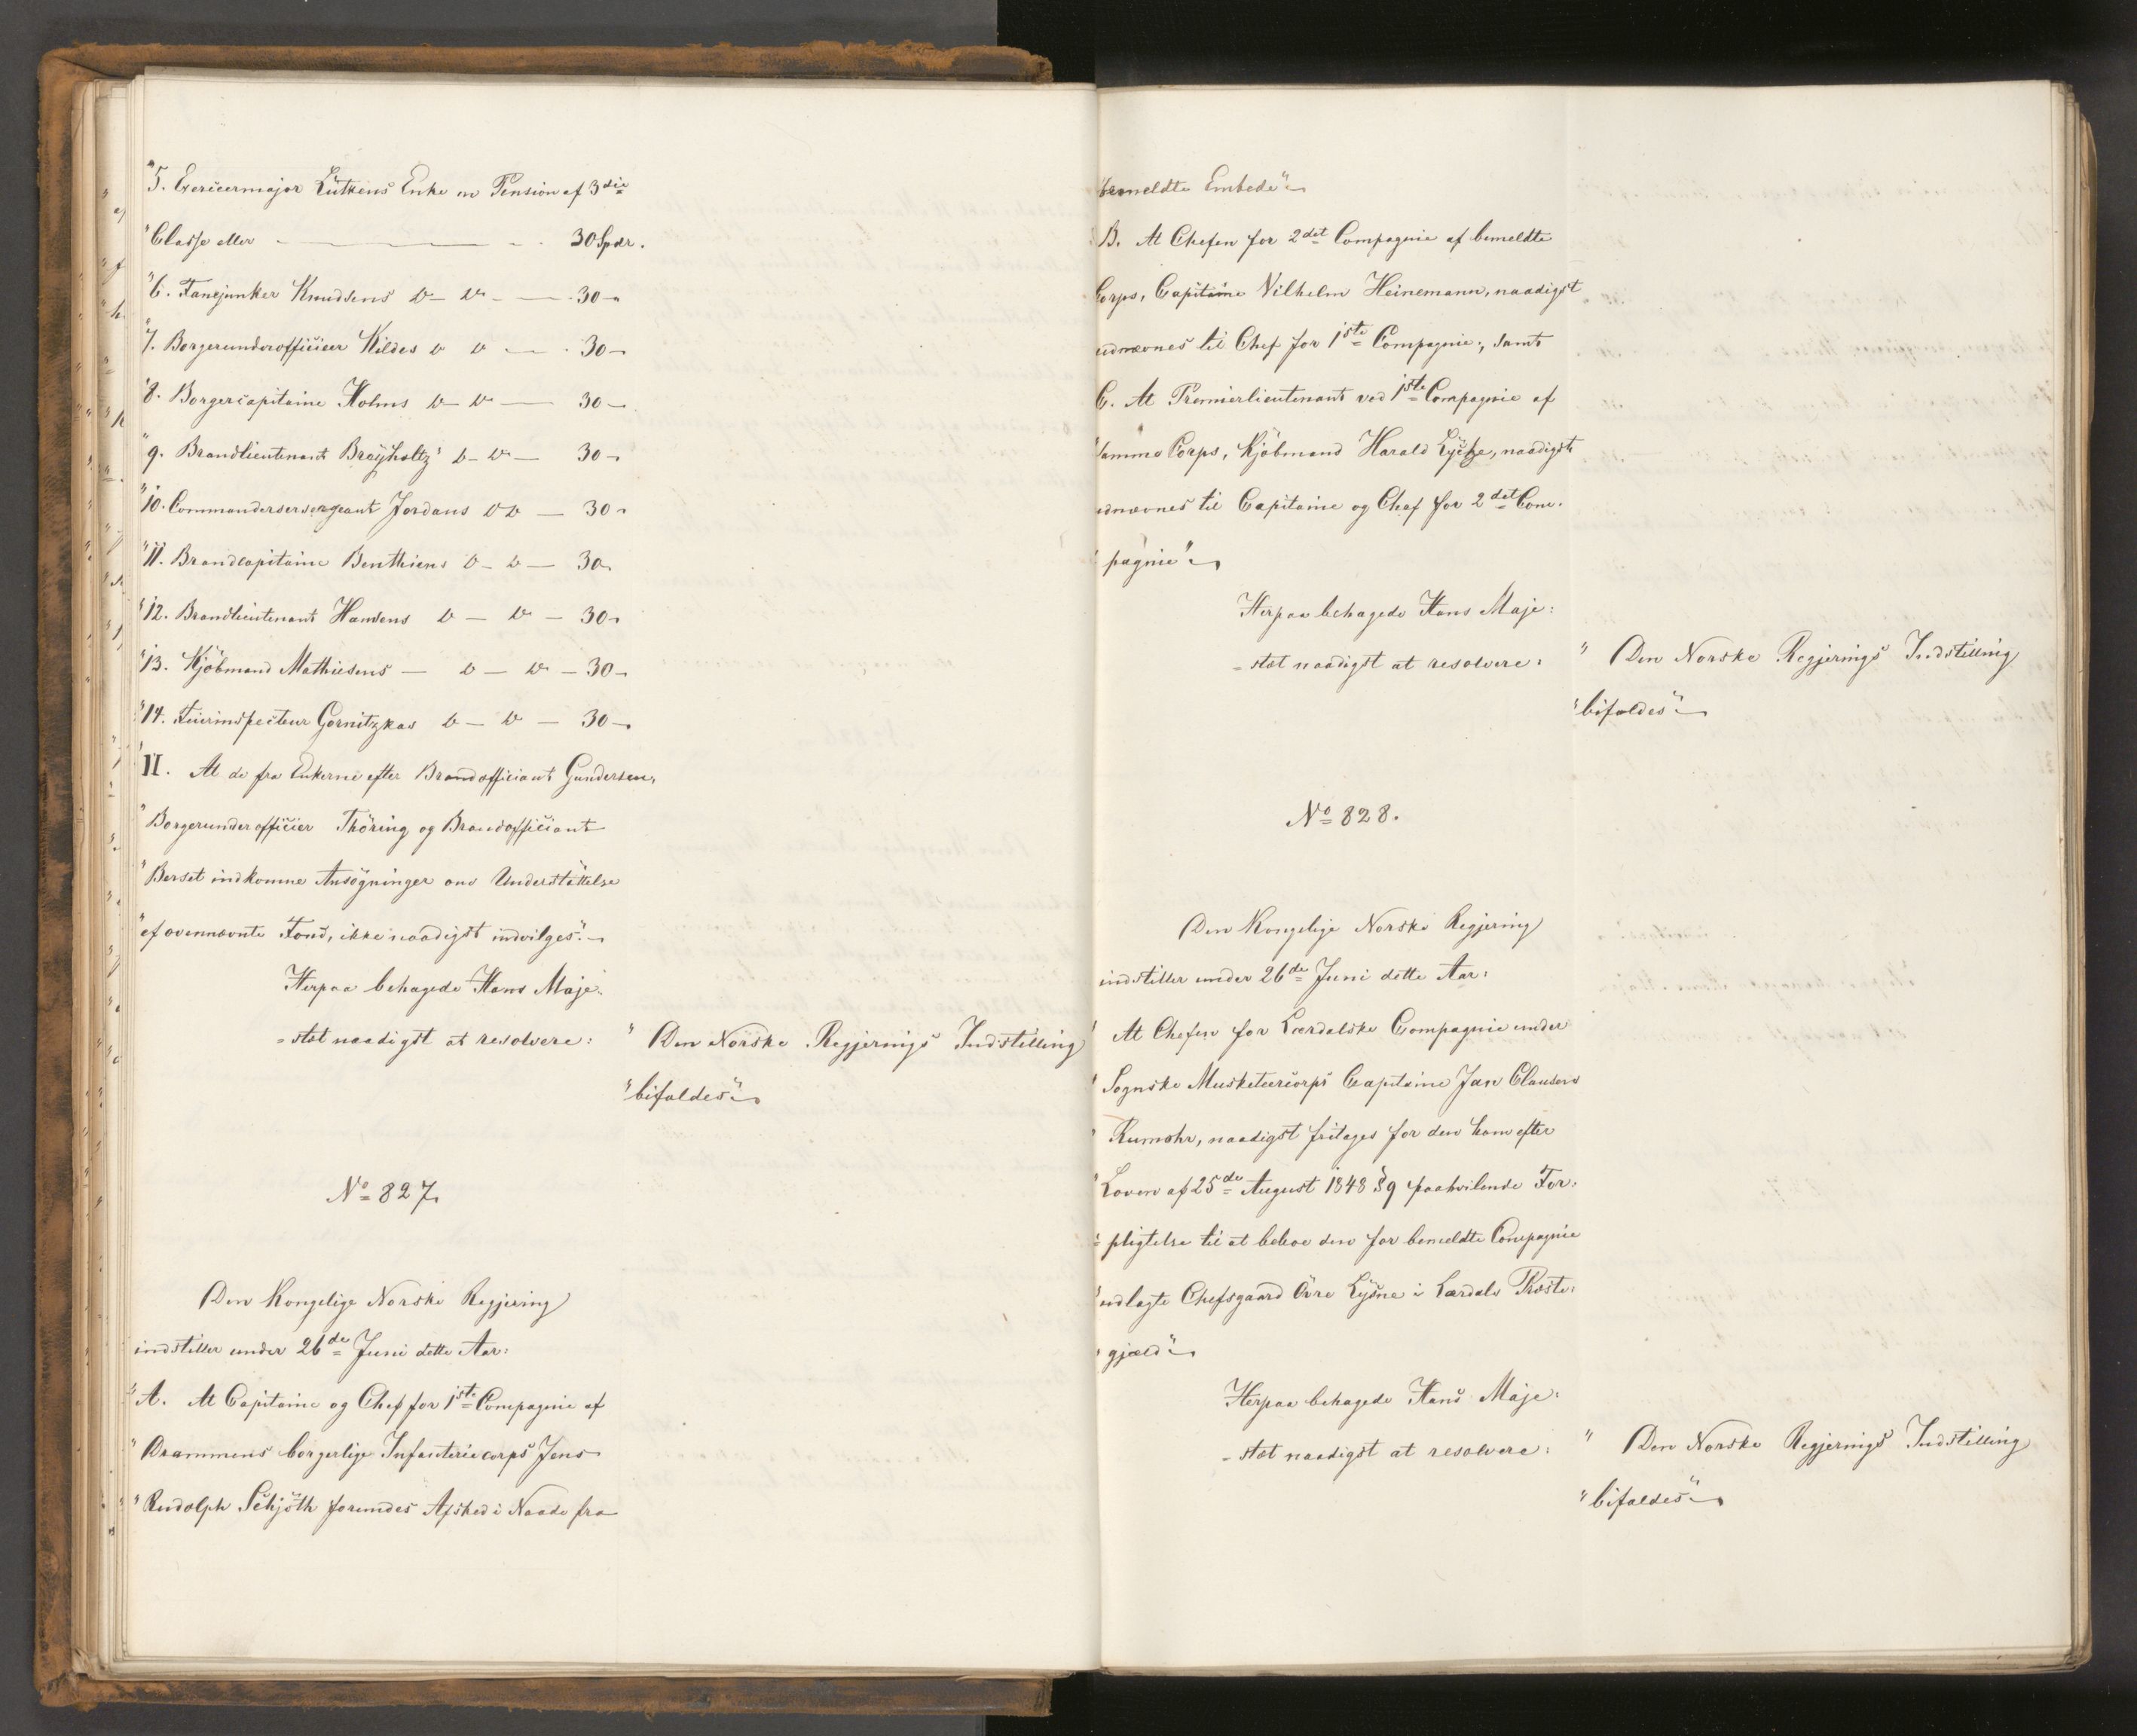 "5. Exercermajor Lütkens Enke en Pension af 3die
"Classe eller — 30 Spdr.
"6. Fanejunker Knudsens D– D– — 30 –
"7. Borgerunderofficieer Kildes D D — 30 –
"8. Borgercapitaine Holms D– D– — 30 –
"9. Brandlieutenant Breÿholtz' D– D– — 30 –
"10. Commandersersergeant Jordans D D — 30 –
"11. Brandcapitaine Benthiens D – D — 30 –
"12. Brandlieutenant Hansens D – D – 30 –
"13. Kjöbmand Mathiesens — D — D – 30 –
"14. Tuirinspecteur Gornitzkas D – D – 30 –
"II. At de fra Enkerne efter Brandofficiant Gundersen,
"Borgerunderofficier Thöring og Brandofficiant
"Berset indkomne Ansögninger om Understöttelse
"af ovennævnte Fond, ikke naadigst indvilges". –
Herpaa behagede Hans Maje:
= stæt naadigst at resolvere:
" Den Norske Regjerings Indstilling
"bifaldes" –
No 827.
Den Kongelige Norske Regjering
indstiller under 26de Juni dette Aar:
"A. At Capitaine og Chef for 1ste Compagnie af
"Drammens borgerlige Infanteriecorps Jens
"Rudolph Schjöth forundes Afsked i Naade fra
bemeldte Embede" –
B. At Chefen for 2det Compagnie af bemeldte
Corps, Capitaine Vilhelm Heinemann, naadigst
udnævnes til Chef for 1ste Compagnie, samt
C. At Premierlieutenant ved 1ste Compagnie af
samme Corps, Kjöbmand Harald Lÿche, naadigst
udnævnes til Capitaine og Chef for 2det Com-
pagnie" –
Herpaa behagede Hans Maje:
= stæt naadigst at resolvere:
" Den Norske Regjerings Indstilling
"bifaldes" –
No 828.
Den Kongelige Norske Regjering
indstiller under 26de Juni dette Aar:
" At Chefen for Lærdalske Compagnie under
" Sognske Musketeercorps Capitaine Jan Clausens
" Rumohr, naadigst fritages for den ham efter
"Loven af 25de August 1848 § 9 paahvilende For:
= pligtelse til at beboe den for bemeldte Compagnie
"udlagte Chefsgaard Övre Lÿsne i Lærdals Præste:
" gjæld" –
Herpaa behagede Hans Maje:
= stæt naadigst at resolvere:
" Den Norske Regjerings Indstilling
"bifaldes" –